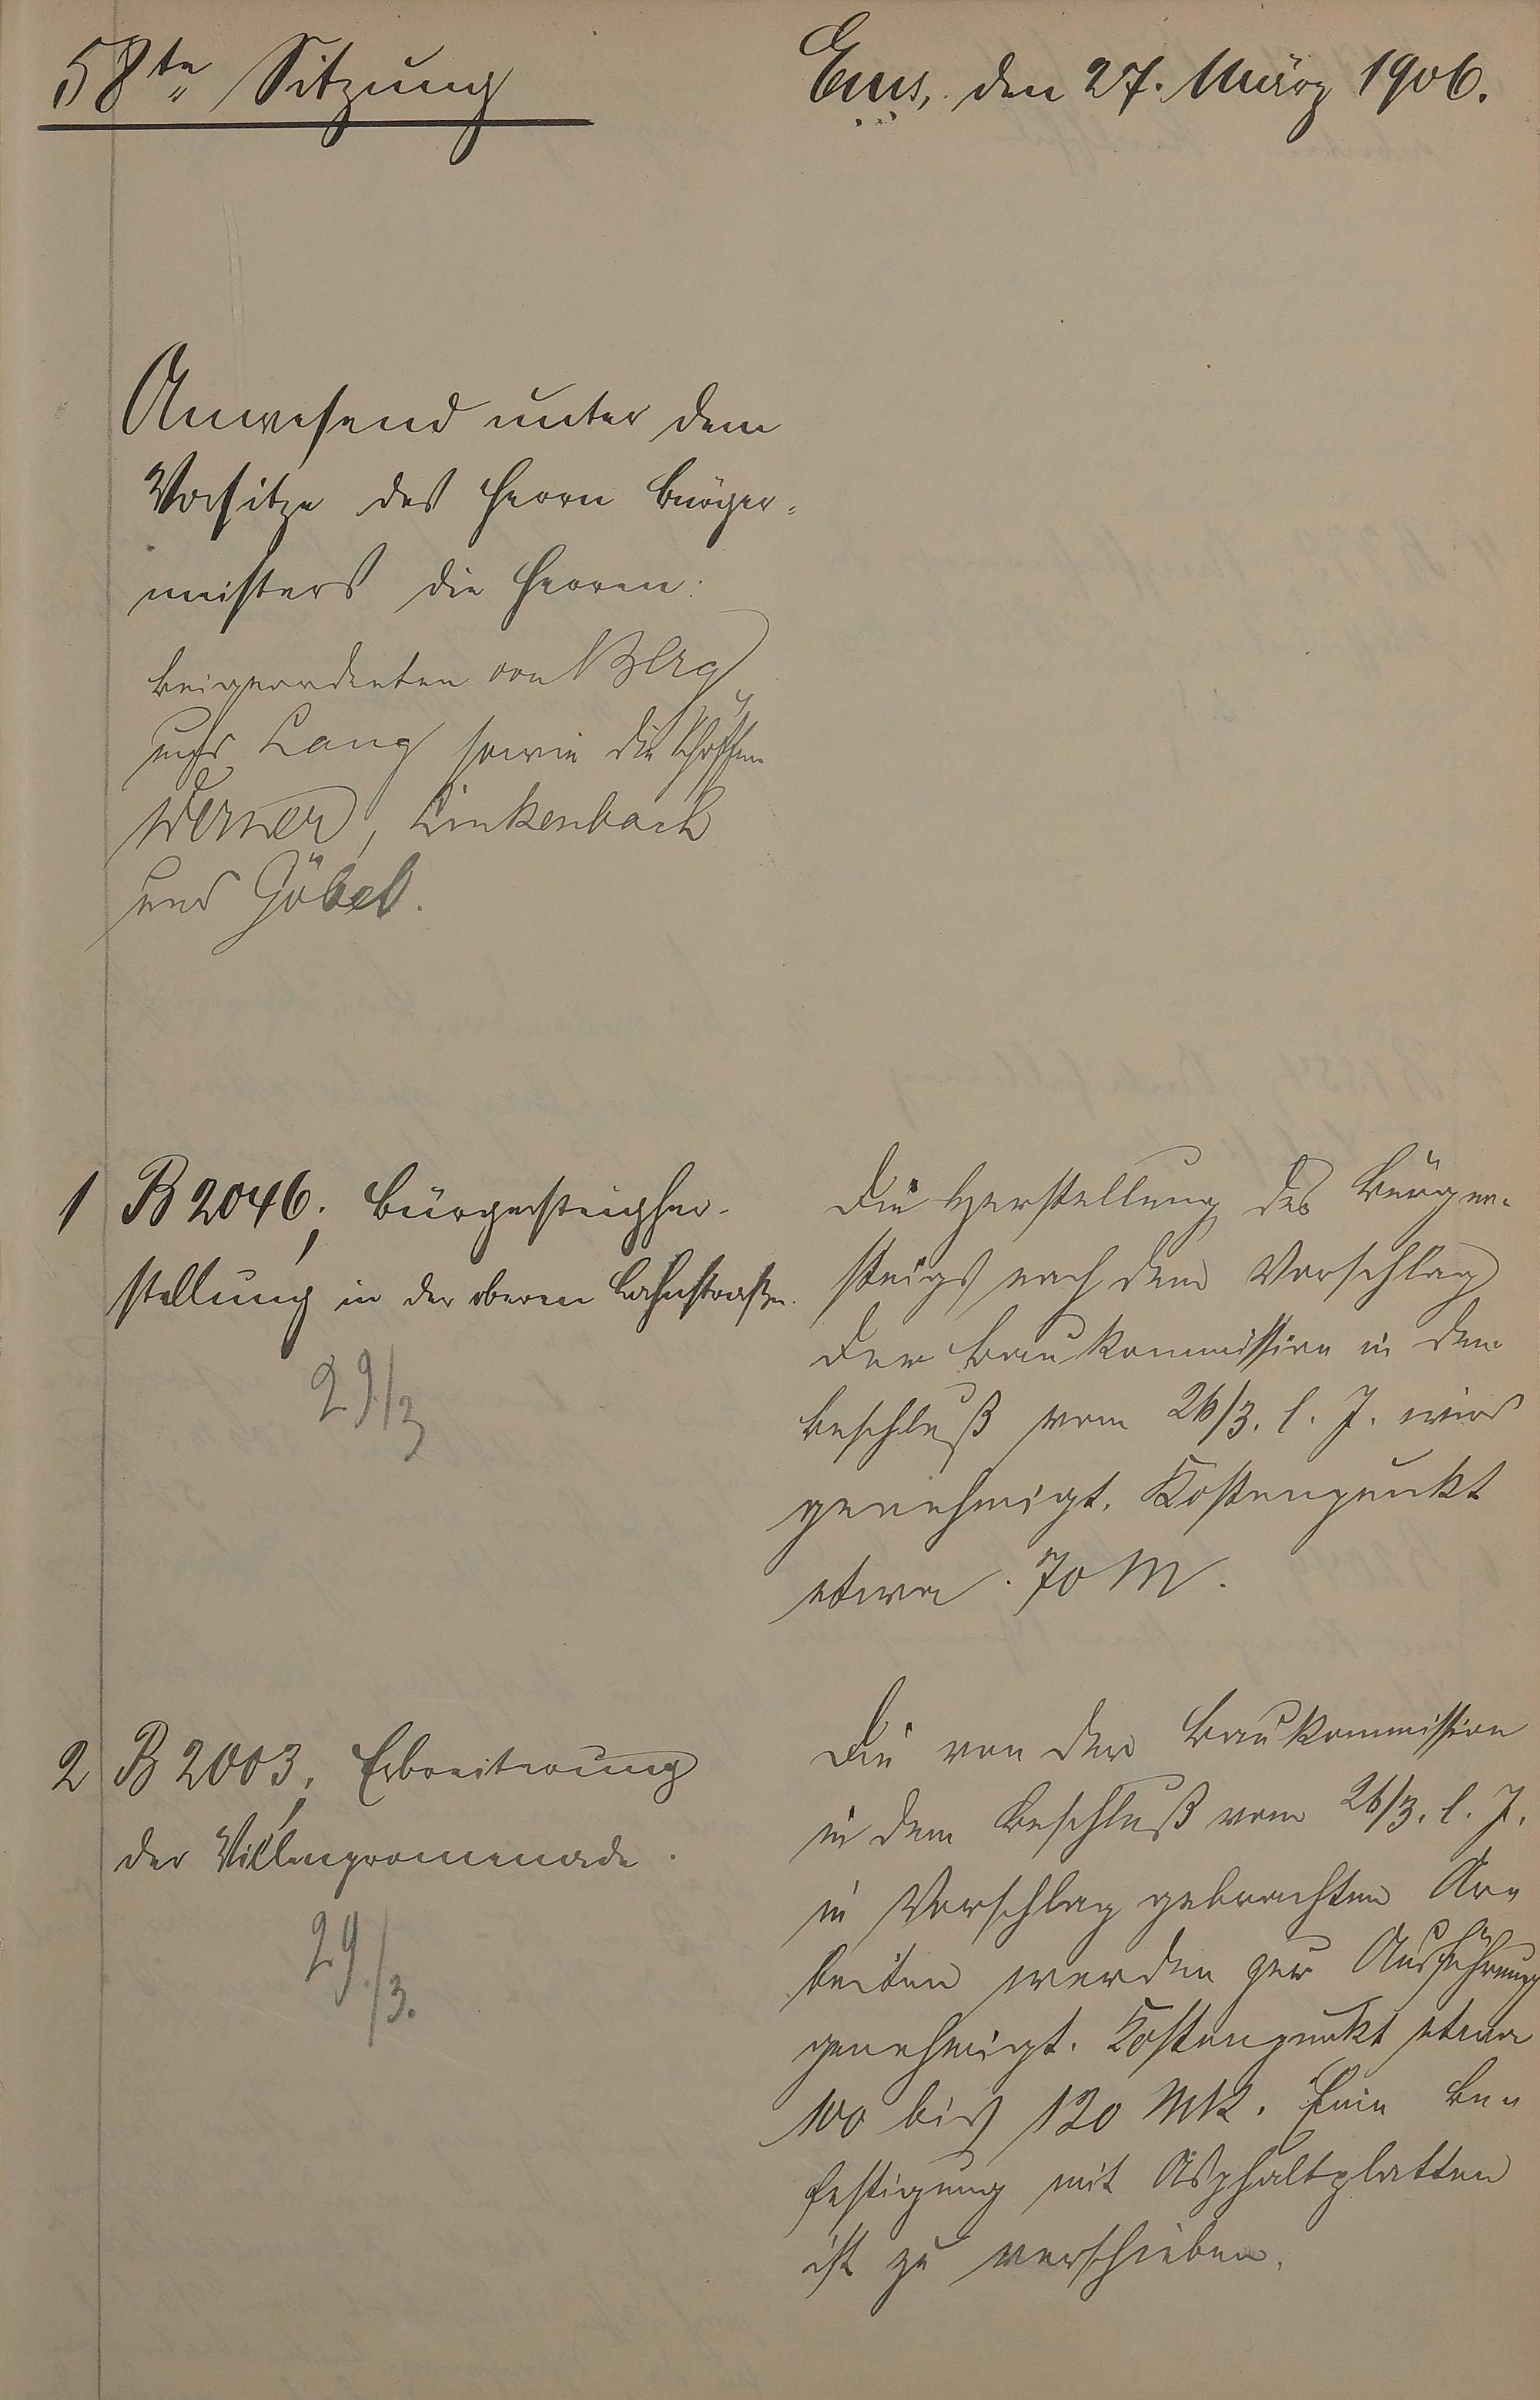 58te Sitzung
Ems, den 27. März 1906.
Anwesend unter dem
Vorsitze des Herrn Bürger-
meisters die Herren:
Beigeordneten von Berg
und Lang sowie die Schöffen
Werner, Linkenbach
und Göbel.
1 B 2046; Bürgersteigher-
stellung in der oberen Lahnstraße.
29/3
Die Herstellung des Bürger-
steigs nach dem Vorschlag
der Baukommission in dem
Beschluß vom 26/3. l. J. wird
genehmigt. Kostenpunkt
etwa 70 M.
2 B 2003; Erbreiterung
der Villenpromenade.
29./3.
Die von der Baukommission
in dem Beschluß vom 26/3. l. J.
in Vorschlag gebrachten Ar-
beiten werden zur Ausführung
genehmigt. Kostenpunkt etwa
100 bis 120 Mk. Eine Be-
festigung mit Asphaltplatten
ist zu verschieben.